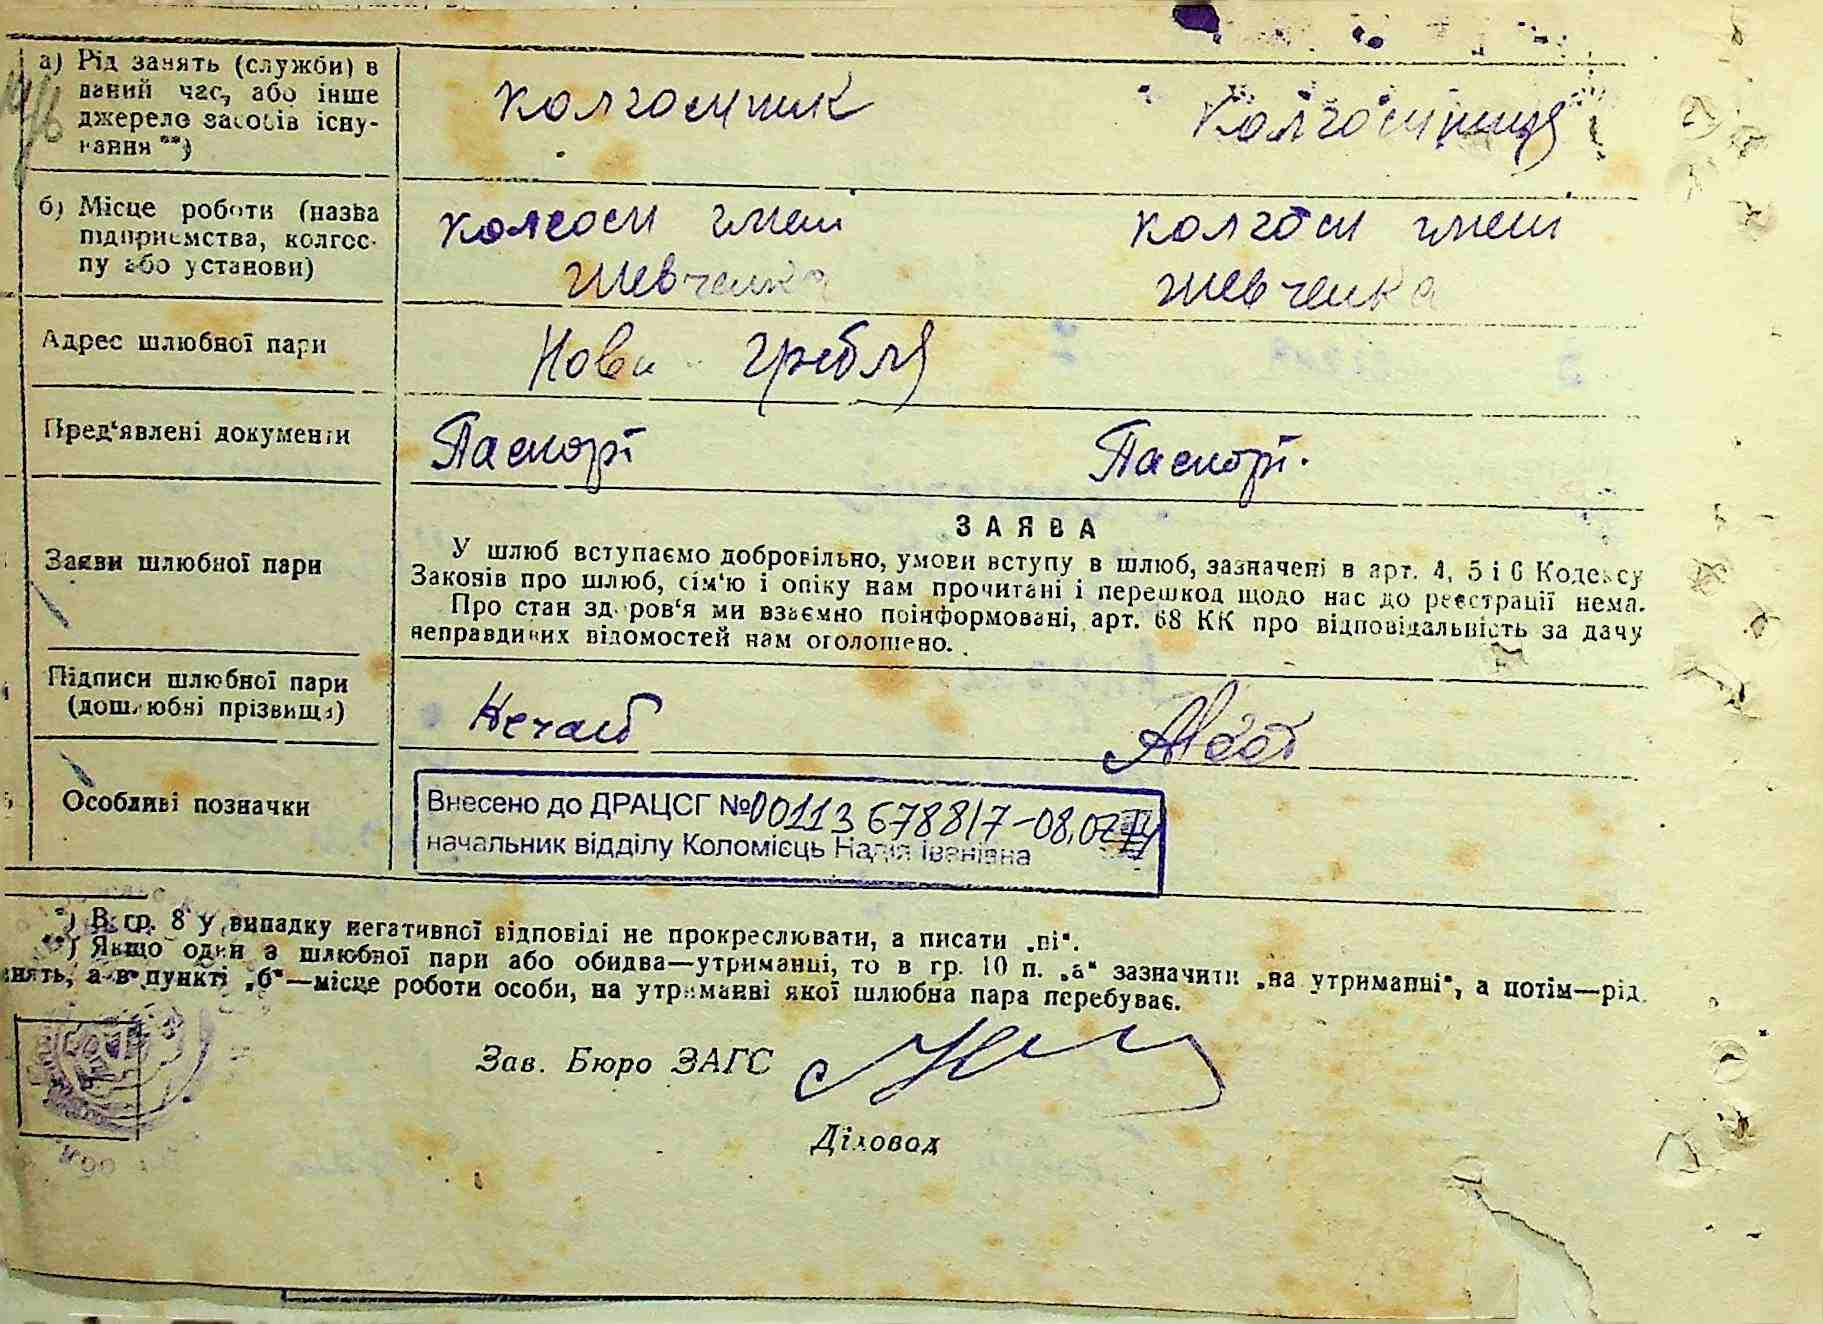 а) Рід занять (служби) в даний час, або інше джерело засобів існування **)
колгоспник
колгоспниця
б) Місце роботи (назва підприємства, колгоспу або установи)
колгосп імені
Шевченка
колгосп імені
Шевченка
Адрес шлюбної пари
Нова гребля
Пред'явлені документи
Паспорт
Паспорт.
Заяви шлюбної пари
ЗАЯВА
У шлюб вступаємо добровільно, умови вступу в шлюб, зазначені в арт. 4, 5 і 6 Кодексу
Законів про шлюб, сім'ю і опіку нам прочитані і перешкод щодо нас до реєстрації нема.
Про стан здоров'я ми взаємно поінформовані, арт. 68 КК про відповідальність за дачу
неправдивих відомостей нам оголошено.
Підписи шлюбної пари
(дошлюбні прізвища)
Нечай
Особливі позначки
Внесено до ДРАЦСГ №00113678817-08.07
начальник відділу Коломієць Надія Іванівна
*) В гр. 8 у випадку негативної відповіді не прокреслювати, а писати „ні".
**) Якщо один з шлюбної пари або обидва—утриманці, то в гр. 10 п. „а" зазначити „на утриманні", а потім—рід
занять, а в пункті „б"—місце роботи особи, на утриманні якої шлюбна пара перебуває.
Зав. Бюро ЗАГС
Діловод